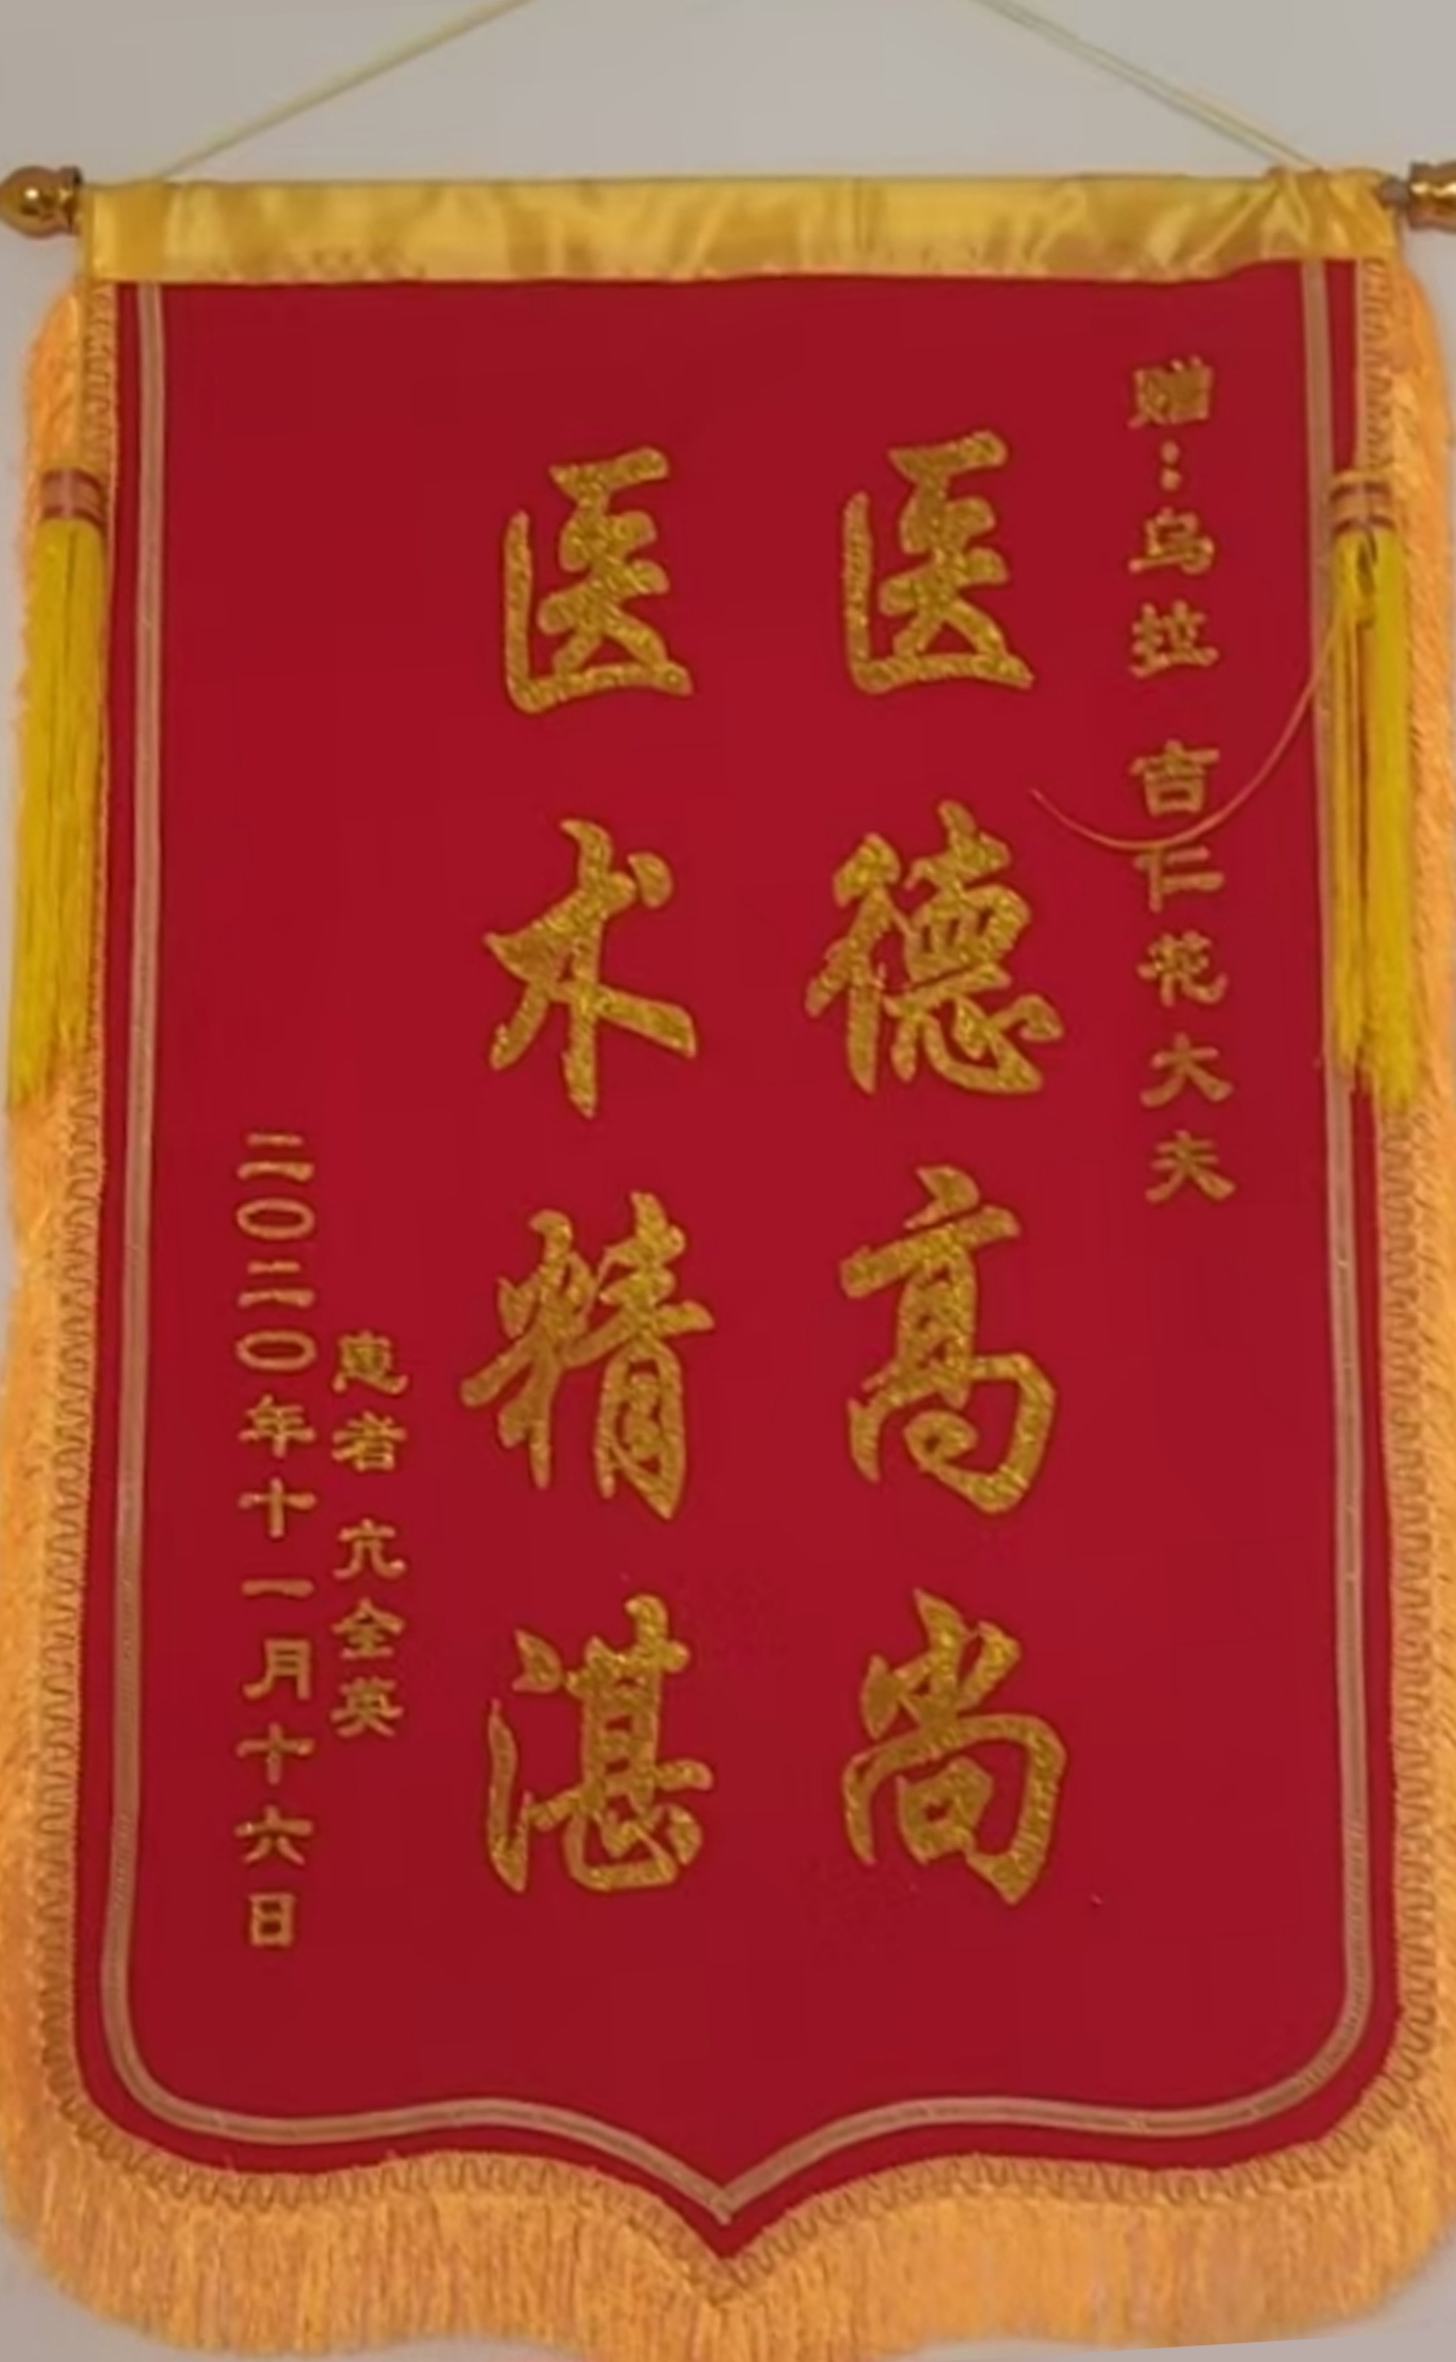 赠：乌拉 吉仁花大夫
医德高尚
医术精湛
患者 亢全英
二〇二〇年十一月十六日